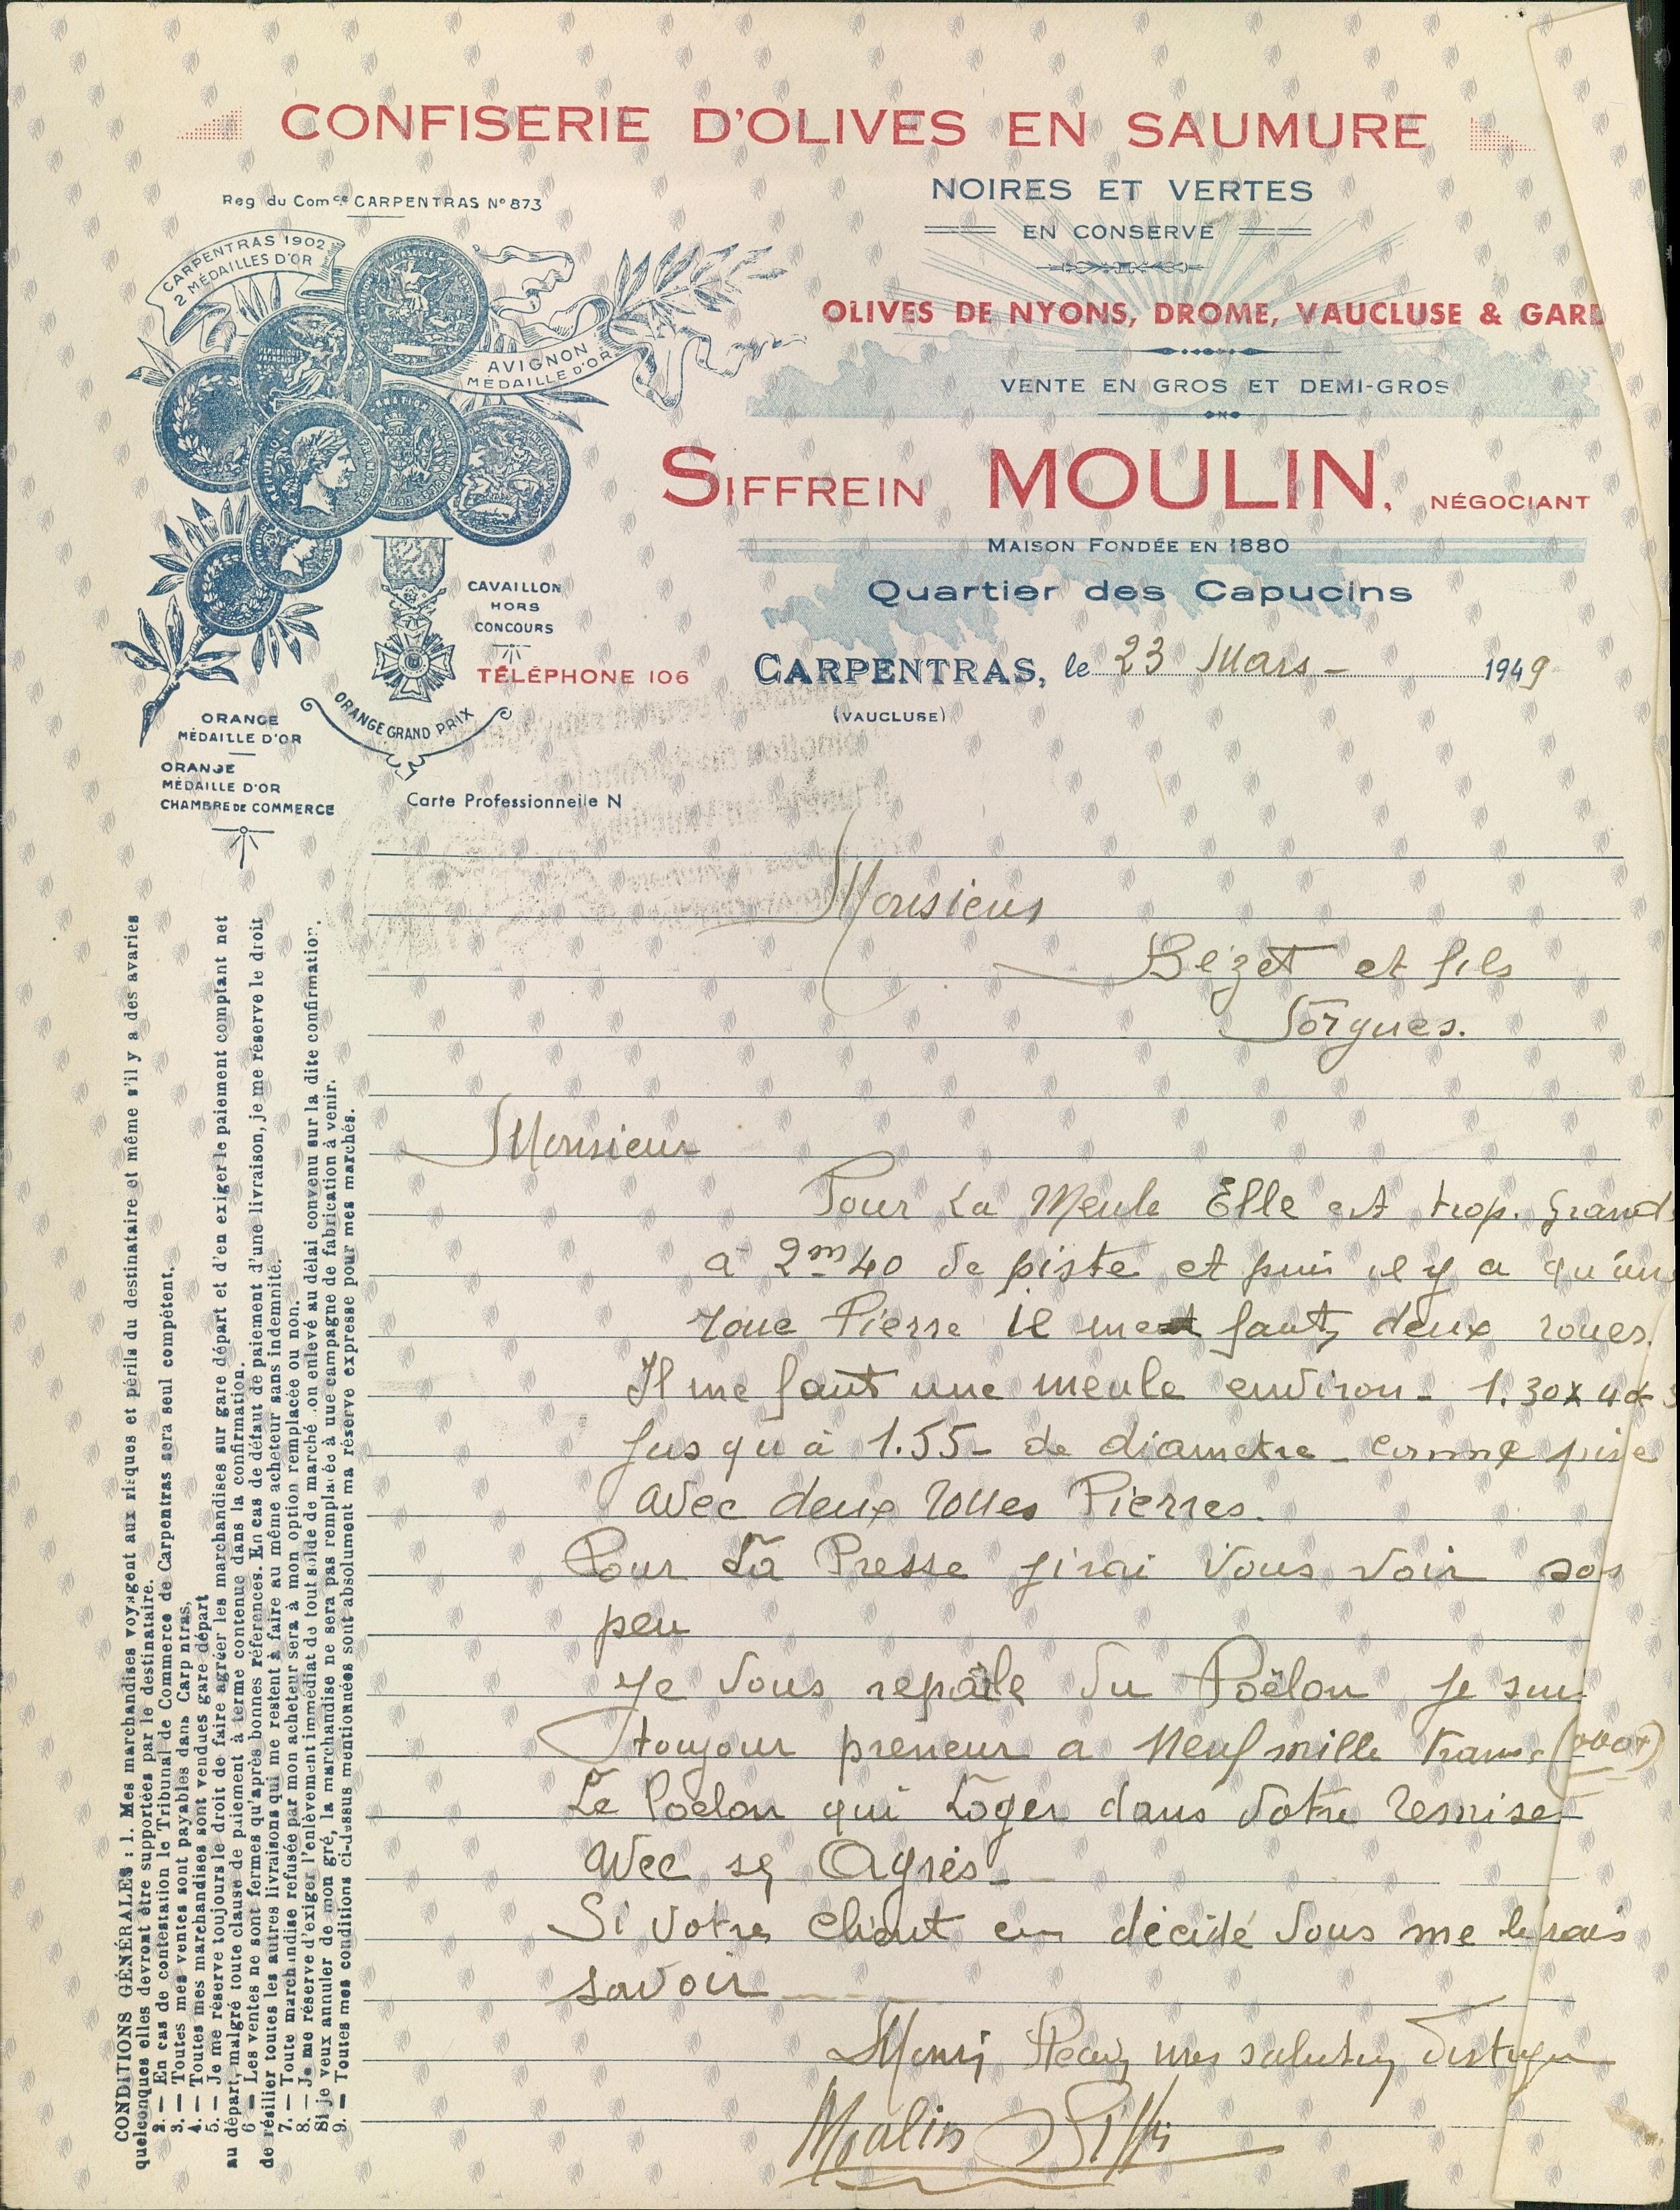 CONFISERIE D'OLIVES EN SAUMURE
NOIRES ET VERTES
EN CONSERVE
Reg du Com.ce CARPENTRAS N° 873
CARPENTRAS 1902
2 MÉDAILLES D'OR
AVIGNON
MÉDAILLE D'OR
OLIVES DE NYONS, DROME, VAUCLUSE & GARD
VENTE EN GROS ET DEMI-GROS
SIFFREIN MOULIN, NÉGOCIANT
MAISON FONDÉE EN 1880
Quartier des Capucins
CAVAILLON
HORS
CONCOURS
TÉLÉPHONE 106
CARPENTRAS, le 23 Mars - 1949
(VAUCLUSE)
ORANGE GRAND PRIX
ORANGE
MÉDAILLE D'OR
ORANGE
MÉDAILLE D'OR
CHAMBRE DE COMMERCE
Carte Professionnelle N
Monsieur
Bézet et fils
Sorgues.
Monsieur
Pour La Meule Elle est trop. Grand
a 2m40 de piste et puis il y a qu'un
roue Pierre il me faut deux roues.
Il me faut une meule environ - 1.30 x 40
Jusqu'à 1.55 - de diametre - comme piste
avec deux roues Pierres.
Pour La Presse jirai vous voir sos
peu
Je vous reparle du Poëlon Je sui
toujour preneur a Neuf mille Frans
Le Poëlon qui Loger dans votre Remise
Avec se Agrés -
Si votre Client en décidé vous me ferais
savoir
mes salutes
Moulin Siffrin
CONDITIONS GÉNÉRALES : 1. Mes marchandises voyagent aux risques et périls du destinataire et même s'il y a des avaries
quelconques elles devront être supportées par le destinataire.
2. — En cas de contestation le Tribunal de Commerce de Carpentras sera seul compétent.
3. — Toutes mes ventes sont payables dans Carp ntras,
4. — Toutes mes marchandises sont vendues gare départ
5. — Je me réserve toujours le droit de faire agréer les marchandises sur gare départ et d'en exiger le paiement comptant net
au départ, malgré toute clause de paiement à terme contenue dans la confirmation.
6 — Les ventes ne sont fermes qu'après bonnes références. En cas de défaut de paiement d'une livraison, je me réserve le droit
de résilier toutes les autres livraisons qui me restent à faire au même acheteur sans indemnité.
7. — Toute marchandise refusée par mon acheteur sera à mon option remplacée ou non.
8. — Je me réserve d'exiger l'enlèvement immédiat du tout solde de marché non enlevé au délai convenu sur la dite confirmation.
Si je veux annuler de mon gré, la marchandise ne sera pas remplacée à une campagne de fabrication à venir.
9. — Toutes mes conditions ci-dessus mentionnées sont absolument ma réserve expresse pour mes marchés.